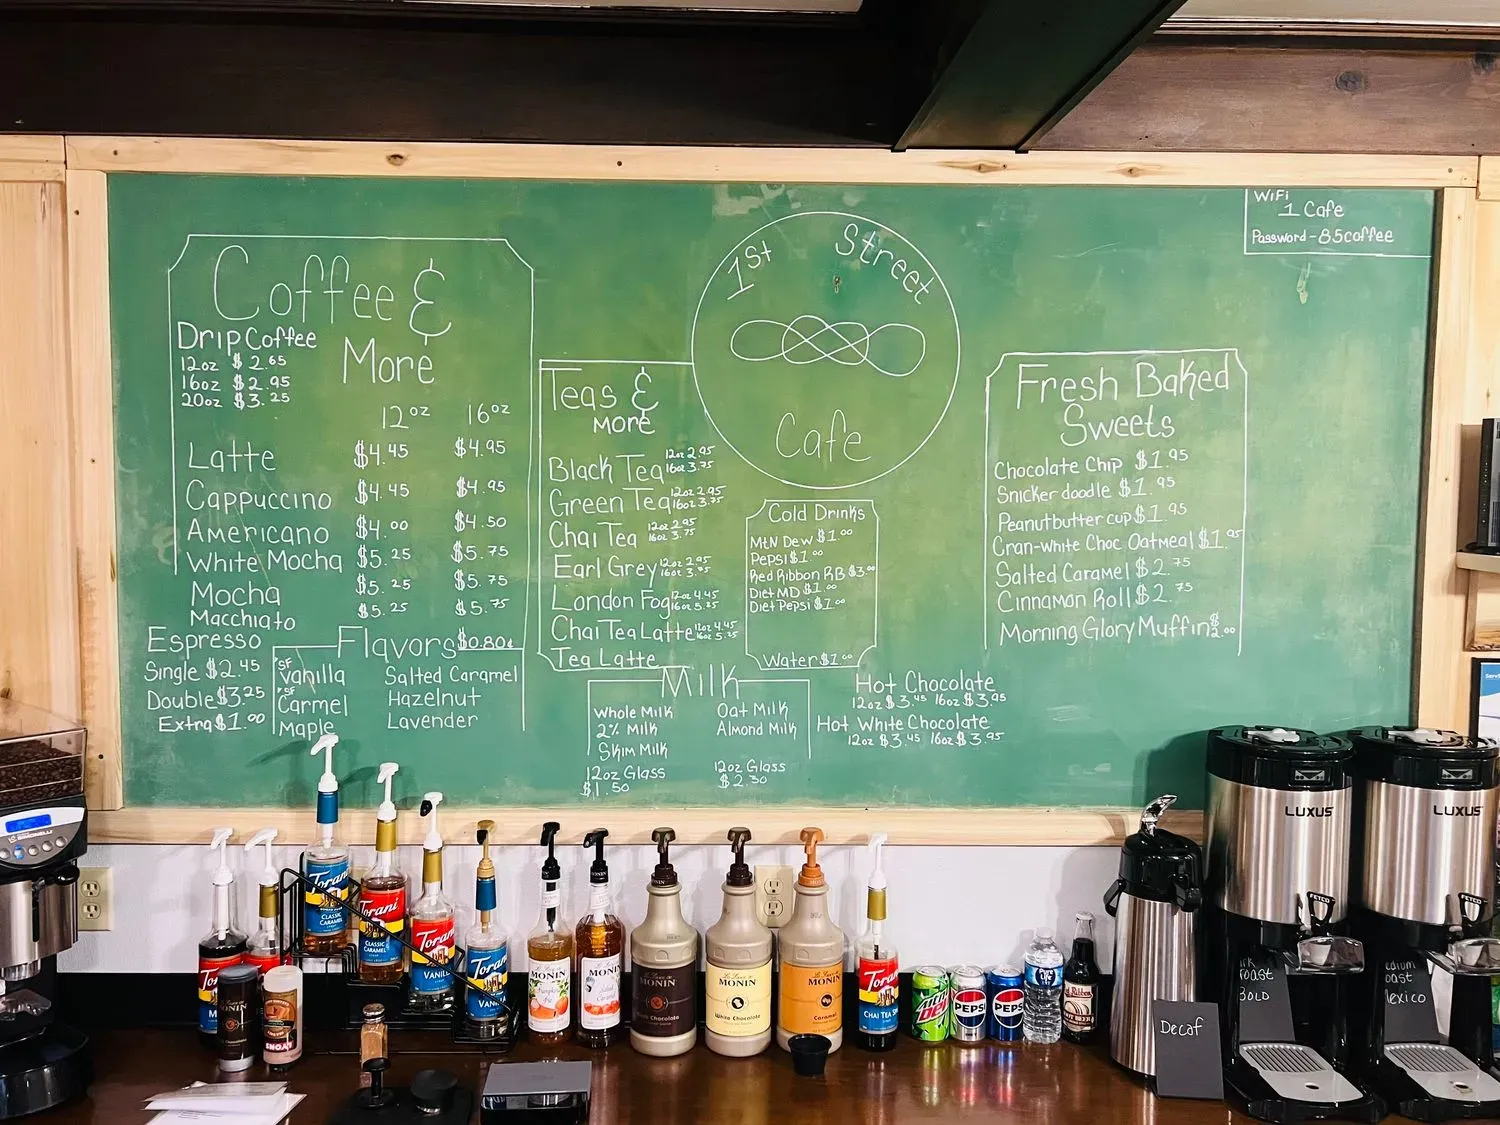 WiFi
1 Cafe
Password-85coffee
1st Street
Cafe
Coffee &
More
Drip Coffee
12oz $2.65
16oz $2.95
20oz $3.25
12oz 16oz
Latte $4.45 $4.95
Cappuccino $4.45 $4.95
Americano $4.00 $4.50
White Mocha $5.25 $5.75
Mocha $5.25 $5.75
Macchiato $5.25 $5.75
Espresso
Single $2.45
Double $3.25
Extra $1.00
Flavors $0.80¢
SF Vanilla
SF Carmel
Maple
Salted Caramel
Hazelnut
Lavender
Teas &
More
Black Tea 12oz 2.95 16oz 3.75
Green Tea 12oz 2.95 16oz 3.75
Chai Tea 12oz 2.95 16oz 3.75
Earl Grey 12oz 2.95 16oz 3.75
London Fog 12oz 4.45 16oz 5.25
Chai Tea Latte 12oz 4.45 16oz 5.25
Tea Latte
Cold Drinks
Mtn Dew $1.00
Pepsi $1.00
Red Ribbon RB $3.00
Diet MD $1.00
Diet Pepsi $1.00
Water $1.00
Milk
Whole Milk
2% Milk
Skim Milk
12oz Glass
$1.50
Oat Milk
Almond Milk
12oz Glass
$2.30
Hot Chocolate
12oz $3.45 16oz $3.95
Hot White Chocolate
12oz $3.45 16oz $3.95
Fresh Baked
Sweets
Chocolate Chip $1.95
Snicker doodle $1.95
Peanutbutter cup $1.95
Cran-White Choc Oatmeal $1.95
Salted Caramel $2.75
Cinnamon Roll $2.75
Morning Glory Muffin $2.00
Torani
CLASSIC
CARAMEL
Torani
CLASSIC
CARAMEL
Torani
VANILLA
Torani
MONIN
MONIN
MONIN
MONIN
White Chocolate
MONIN
Caramel
Torani
CHAI TEA
MONIN
PEPSI
PEPSI
Decaf
LUXUS
FETCO
Roast
BOLD
LUXUS
FETCO
Mexico